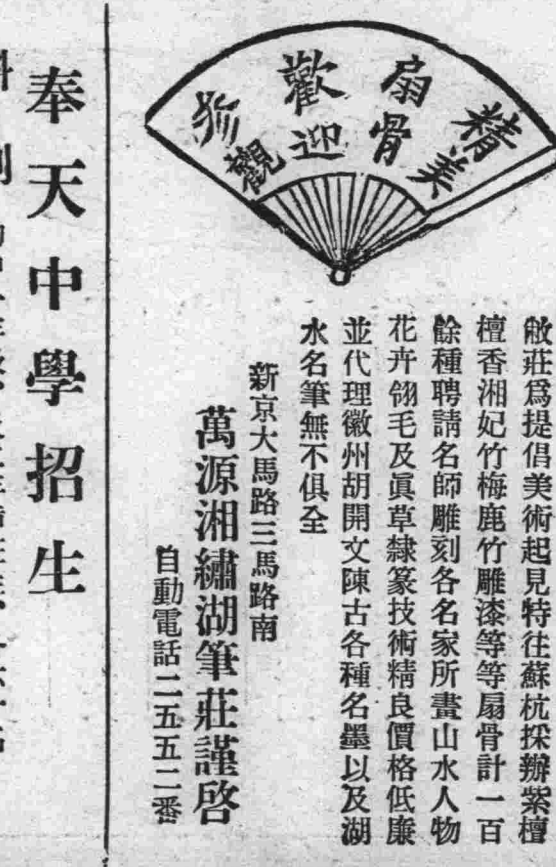 精美
扇骨
歡迎
參觀
敝莊爲提倡美術起見特往蘇杭採辦紫檀
檀香湘妃竹梅鹿竹雕漆等等扇骨計一百
餘種聘請名師雕刻各名家所畫山水人物
花卉翎毛及眞草隸篆技術精良價格低廉
並代理徽州胡開文陳古各種名墨以及湖
水名筆無不俱全
新京大馬路三馬路南
萬源湘繡湖筆莊謹啓
自動電話二五五二番
奉天中學招生